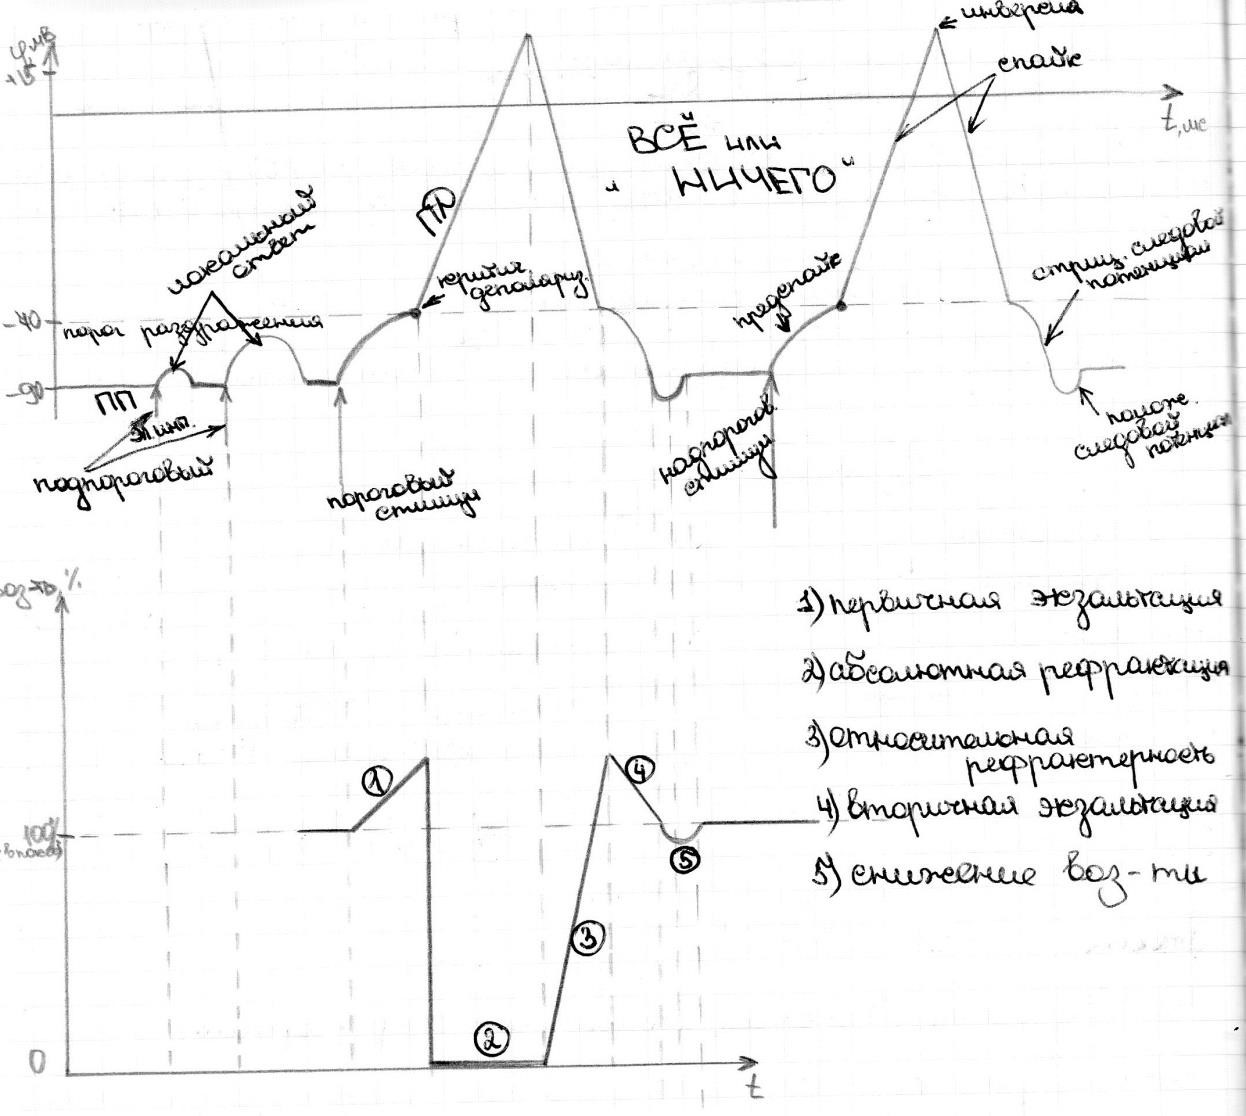 φ,мВ
+15
инверсия
спайк
t,мс
ВСЁ или
" НИЧЕГО"
ПД
локальный
ответ
критич.
деполяриз.
предспайк
стриц. следовой
потенциал
-40
порог раздражения
-90
ПП
эл.имп.
подпороговый
пороговый
стимул
надпорогов.
стимул
полож.
следовой
потенциал
воз-ть,%
1) первичная экзальтация
2) абсолютная рефраккция
3) относительная
рефрактерность
4) вторичная экзальтация
5) снижение воз-ти
1
4
100%
5
3
2
0
t